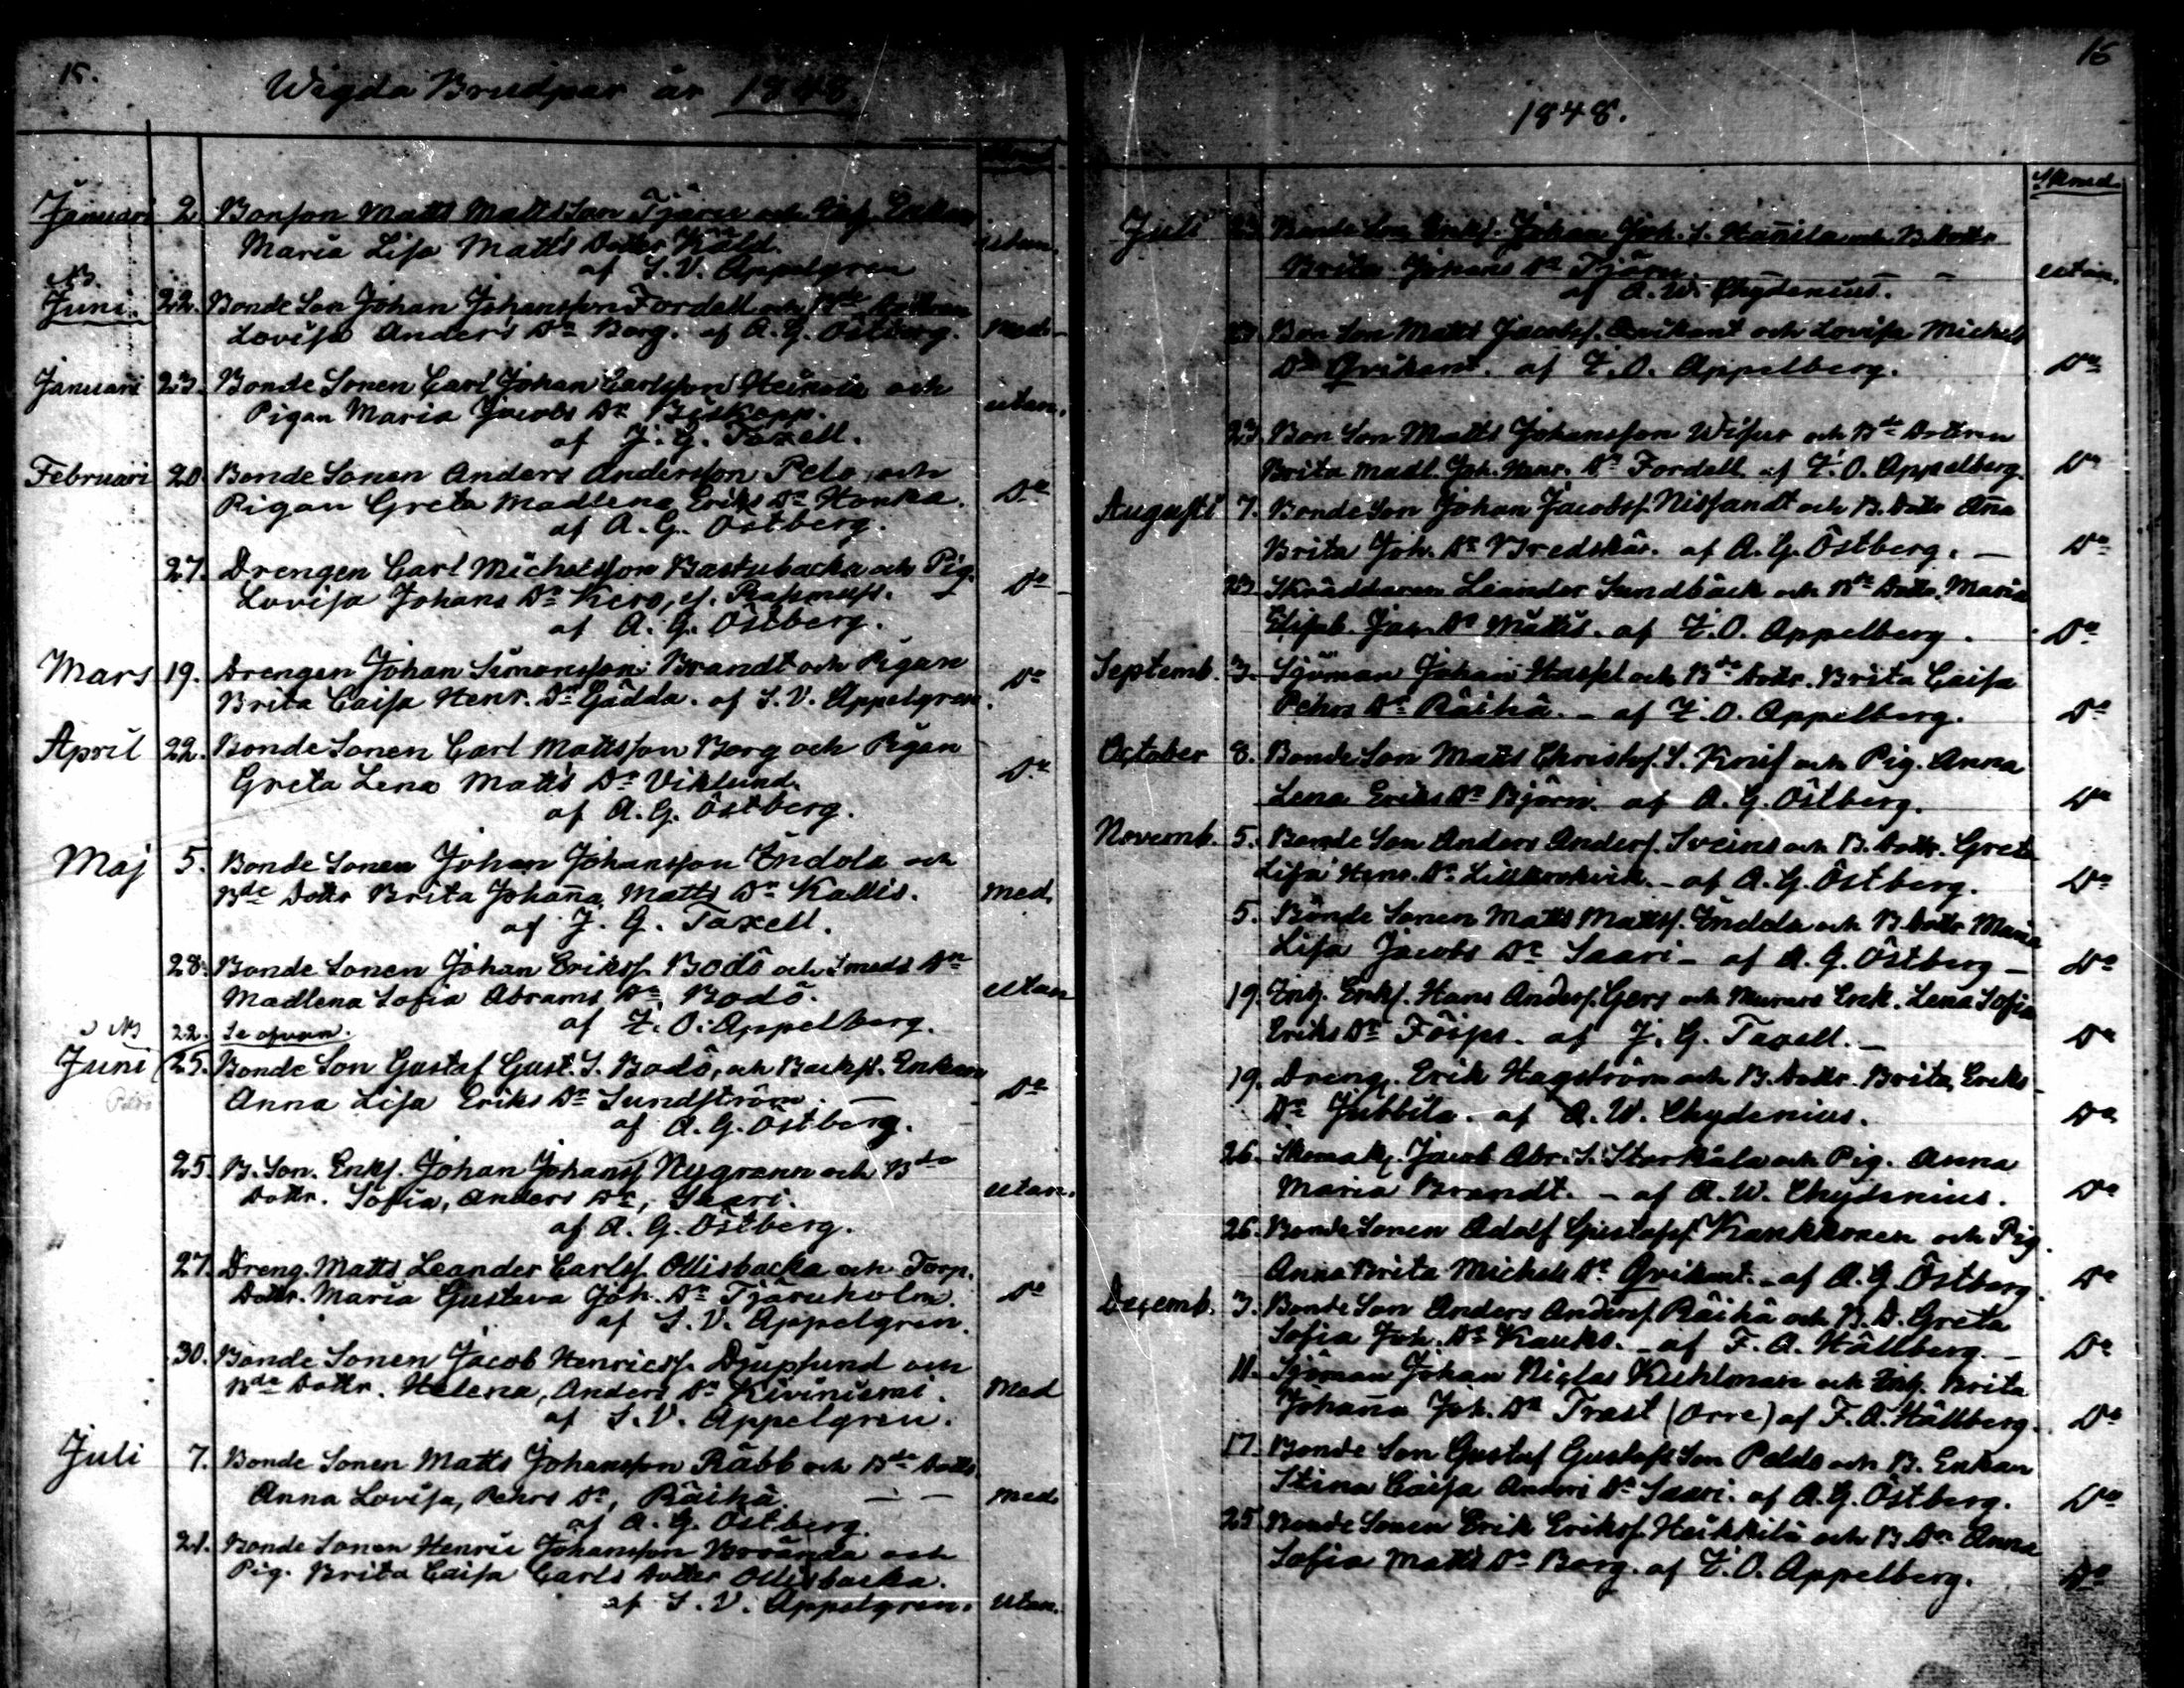 15.
Wigda Brudpar år 1848
Januari 2. Bonson Matts Matts Son Tjäru och Enkan
Maria Lisa Matts Dotter Käld. utan.
af S. V. Appelgren
NB
Juni. 22. Bonde Son Johan Johansson Fordell och Bde Dottren
Lovisa Anders Dr Borg. af A. G. Östberg. Med
Januari 23. Bonde Sonen Carl Johan Carlsson Heinola och
Pigan Maria Jacobs Dr Biskopp. utan.
af J. G. Taxell.
Februari 20. Bonde Sonen Anders Andersson Pelo och
Pigan Greta Madlena Eriks Dr Honka. Do
af A. G. Östberg.
27. Drengen Carl Michelsson Bastubacka och Pig.
Lovisa Johans Dr Kero, Do
af A. G. Östberg.
Mars 19. Drengen Johan Simonsson Brandt och Pigan
Brita Caisa Henr. Dr Gädda. af S. V. Appelgren. Do
April 22. Bonde Sonen Carl Mattsson Borg och Pigan
Greta Lena Matts Dr Viklund. Do
af A. G. Östberg.
Maj 5. Bonde Sonen Johan Johansson Indola och
Bde Dottr Brita Johanna Matts Dr Kallis. Med.
af J. G. Taxell.
28. Bonde Sonen Johan Erikss. Bodö och Smeds Dr
Madlena Sofia Abrams Dr Bodö. utan
af Z. O. Appelberg.
NB 22. Se ofvan.
Juni 25. Bonde Son Gustaf Gust. S. Bodö, och Backst. Enkan
Anna Lisa Eriks Dr Sundström. — Do
af A. G. Östberg.
25. B. Son. Enkl. Johan Johanss Nygrann och Bde
Dottr. Sofia, Anders Dr, Saari. utan.
af A. G. Östberg.
27. Dreng. Matts Leander Carlss. Ollisbacka och Torp.
Dottr. Maria Gustava Joh. Dr Tjäruholm. Do
af S. V. Appelgren.
30. Bonde Sonen Jacob Henricss. Djupsund och
Bde Dottr. Helena, Anders Dr Kiviniemi. Med
af S. V. Appelgren.
Juli 7. Bonde Sonen Matts Johansson Räbb och Bde Dottr.
Anna Lovisa, Pehrs Dr, Räihä. — — Med
af A. G. Östberg.
21. Bonde Sonen Henric Johansson och
Pig. Brita Caisa Carls Dotter Ollisbacka.
af S. V. Appelgren. utan.
16
1848.
Juli 23. Bonde Son Enkl. Johan Joh. S. Hanila och B. Dottr
Brita Johans Dr Tjäru. — — — utan.
af A. W. Chydenius.
23. Bon Son Matts Jacobss. Qvikant och Lovisa Michels
Dr Qvikant. af Z. O. Appelberg. Do
23. Bon Son Matts Johansson och Bde Dottren
Brita Madl. Joh. Henr. Dr Fordell af Z. O. Appelberg. Do
Augusti 7. Bonde Son Johan Jacobss. Nissandt och B. Dottr Anna
Brita Joh. Dr Bredskär. af A. G. Östberg. — Do
23. Skräddaren Leander Sundbäck och Bde Dottr. Maria
Elisab. Jac. Dr Mattis. af Z. O. Appelberg. Do
Septemb. 3. Sjöman Johan Hassel och Bde Dottr. Brita Caisa
Pehrs Dr Räihä. — af Z. O. Appelberg. Do
October 8. Bonde Son Matts Christof. S. Knif och Pig. Anna
Lena Eriks Dr Björn. af A. G. Östberg. Do
Novemb. 5. Bonde Son Anders Anderss. Sveins och B. Dottr. Greta
Lisa Henr. Dr — af A. G. Östberg. Do
5. Bonde Sonen Matts Mattss. Indola och B. Dottr Maria
Lisa Jacobs Dr Saari — af A. G. Östberg — Do
19. Enkl. Hans Anderss. Gers och Murare Enk. Lena Sofia
Eriks Dr af J. G. Taxell. — Do
19. Dreng. Erik Hagström och B. Dottr. Brita Eriks
Dr Jubbila. af A. W. Chydenius. Do
26. Skomak. Jacob Abr. S. Storkåla och Pig. Anna
Maria Brandt. — af A. W. Chydenius. Do
26. Bonde Sonen Adolf Gustafss. Kankkonen och Pig.
Anna Brita Michels Dr Qvikant. — af A. G. Östberg. Do
Decemb. 3. Bonde Son Anders Anderss. Räihä och B. D. Greta
Sofia Joh. Dr Kauks. — af F. A. Hällberg. — Do
11. Sjöman Johan Niclas Kuhlman och Brita
Johanna Joh. Dr Trast (Orre) af F. A. Hällberg. Do
17. Bonde Son Gustaf Gustafs Son Peldo och B. Enkan
Stina Caisa Anders Dr Saari. af A. G. Östberg. Do
25. Bonde Sonen Erik Erikss. Heikkilä och B. Dr Anna
Sofia Matts Dr Borg. af Z. O. Appelberg. Do